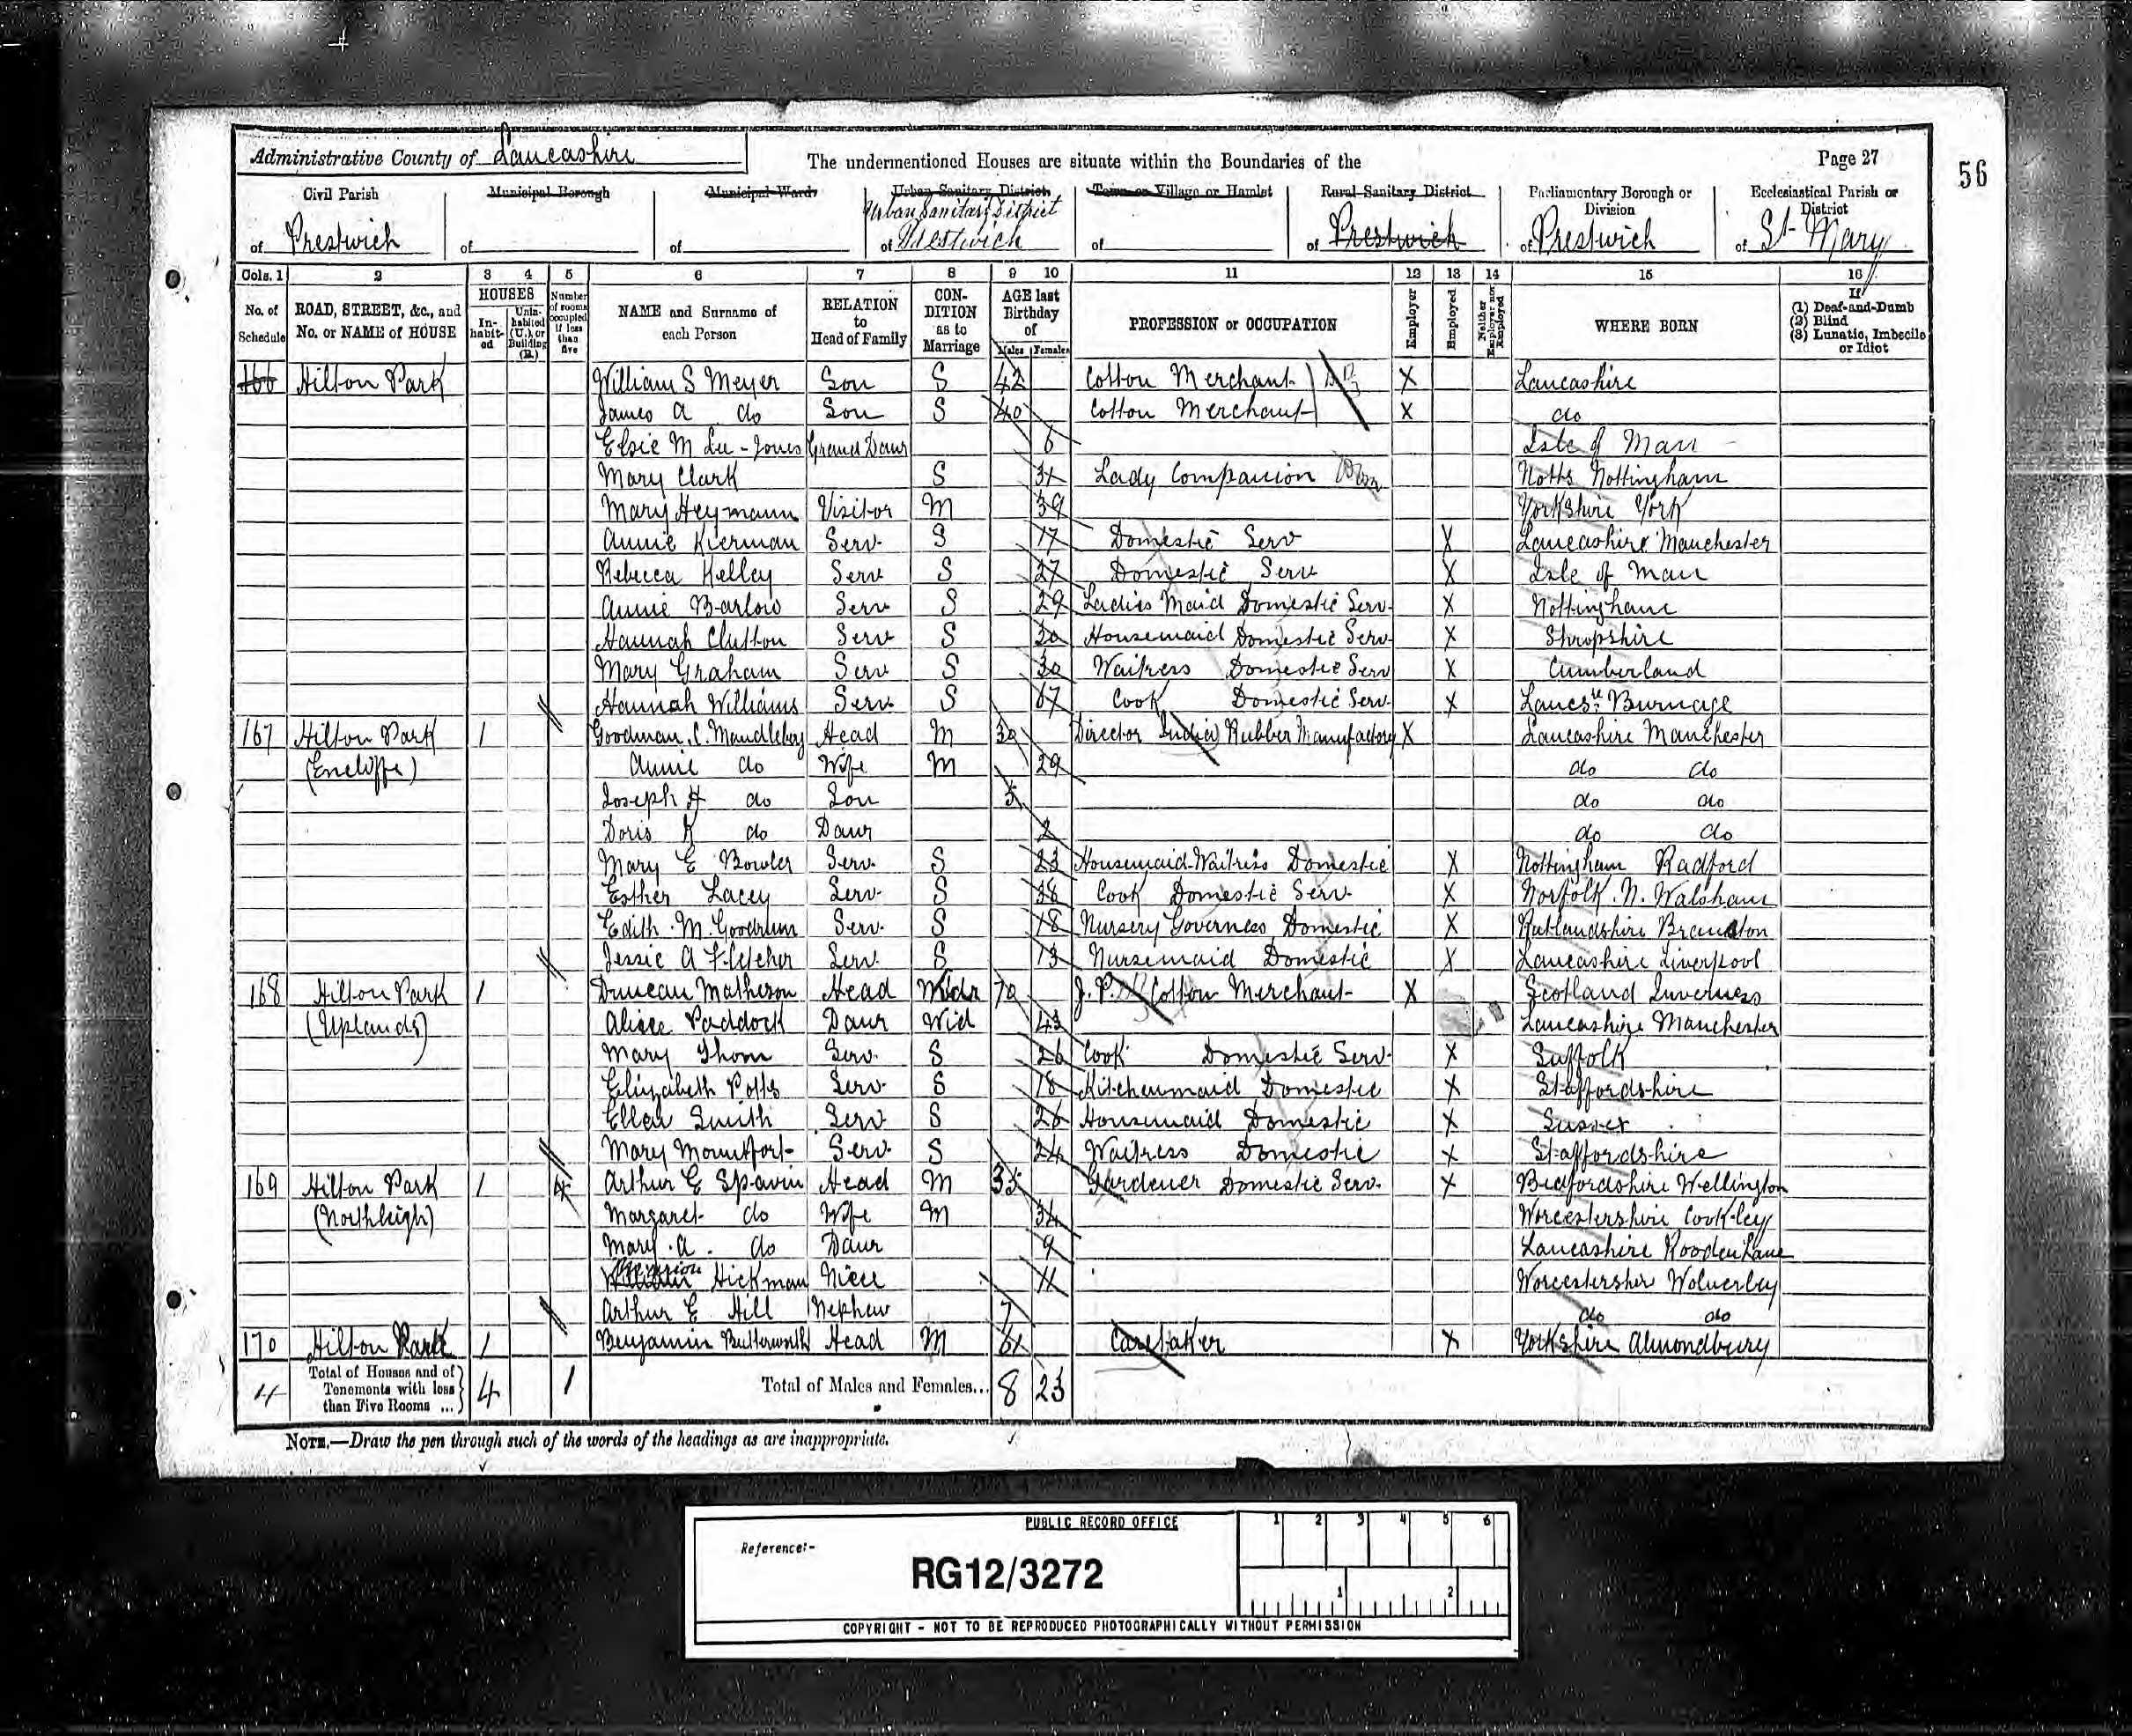 Administrative County of Lancashire
The undermentioned Houses are situate within the Boundaries of the
Page 27
56
Civil Parish of Prestwich
Municipal Borough of
Municipal Ward of
Urban Sanitary District Urban Sanitary District of Prestwich
Town or Village or Hamlet of
Rural Sanitary District of Prestwich
Parliamentary Borough or Division of Prestwich
Ecclesiastical Parish or District of St. Mary
Cols. 1 2 3 4 5 6 7 8 9 10 11 12 13 14 15 16
No. of Schedule
ROAD, STREET, &c., and No. or NAME of HOUSE
HOUSES
Inhabited
Uninhabited (U.) or Building (B.)
Number of rooms occupied if less than five
NAME and Surname of each Person
RELATION to Head of Family
CONDITION as to Marriage
AGE last Birthday of
Males Females
PROFESSION or OCCUPATION
Employer
Employed
Neither Employer nor Employed
WHERE BORN
If
(1) Deaf-and-Dumb
(2) Blind
(3) Lunatic, Imbecile or Idiot
166 Hilton Park William S Meyer Son S 42 Cotton Merchant X Lancashire
James A do Son S 40 Cotton Merchant X do
Elsie M Lee-Jones Grand Daur 6 Isle of Man
Mary Clark S 34 Lady Companion Notts Nottingham
Mary Heymann Visitor M 39 Yorkshire York
Annie Kierman Serv. S 17 Domestic Serv X Lancashire Manchester
Rebecca Kelley Serv S 27 Domestic Serv X Isle of Man
Annie Barlow Serv S 29 Ladies Maid Domestic Serv. X Nottingham
Hannah Clutton Serv S 30 Housemaid Domestic Serv. X Shropshire
Mary Graham Serv S 30 Waitress Domestic Serv X Cumberland
Hannah Williams Serv. S 67 Cook Domestic Serv. X Burnage
167 Hilton Park 1 Goodman. C. Mandleberg Head M 30 Director India Rubber Manufactory X Lancashire Manchester
(Encliffe) Annie do Wife M 29 do do
Joseph H do Son 5 do do
Doris K do Daur 2 do do
Mary E Bowler Serv. S 23 Housemaid-Waitress Domestic X Nottingham Radford
Esther Lacey Serv. S 38 Cook Domestic Serv. X Norfolk. N. Walsham
Edith. M. Goodrum Serv. S 18 Nursery Governess Domestic X Rutlandshire Braunston
Jessie A Fletcher Serv. S 13 Nursemaid Domestic X Lancashire Liverpool
168 Hilton Park 1 Duncan Matheson Head Widr 70 J. P. Cotton Merchant X Scotland Inverness
(Uplands) Alice Paddock Daur Wid 43 Lancashire Manchester
Mary Thom Serv. S 26 Cook Domestic Serv. X Suffolk
Elizabeth Potts Serv. S 18 Kitchenmaid Domestic X Staffordshire
Ellen Smith Serv S 26 Housemaid Domestic X Sussex
Mary Mountfort Serv. S 24 Waitress Domestic X Staffordshire
169 Hilton Park 1 4 Arthur E Spavin Head M 35 Gardener Domestic Serv. X Bedfordshire Wellington
(Northleigh) Margaret do Wife M 34 Worcestershire Cookley
Mary. A. do Daur 9 Lancashire Rooden Lane
Hickman Niece 11 Worcestershire Wolverley
Arthur E Hill Nephew 7 do do
170 Hilton Park 1 Benjamin Butterworth Head M 61 Caretaker X Yorkshire Almondbury
4 Total of Houses and of Tenements with less than Five Rooms ... 4 1 Total of Males and Females... 8 23
NOTE.—Draw the pen through such of the words of the headings as are inappropriate.
PUBLIC RECORD OFFICE
1 2 3 4 5 6
Reference:-
RG12/3272
1 2
COPYRIGHT - NOT TO BE REPRODUCED PHOTOGRAPHICALLY WITHOUT PERMISSION